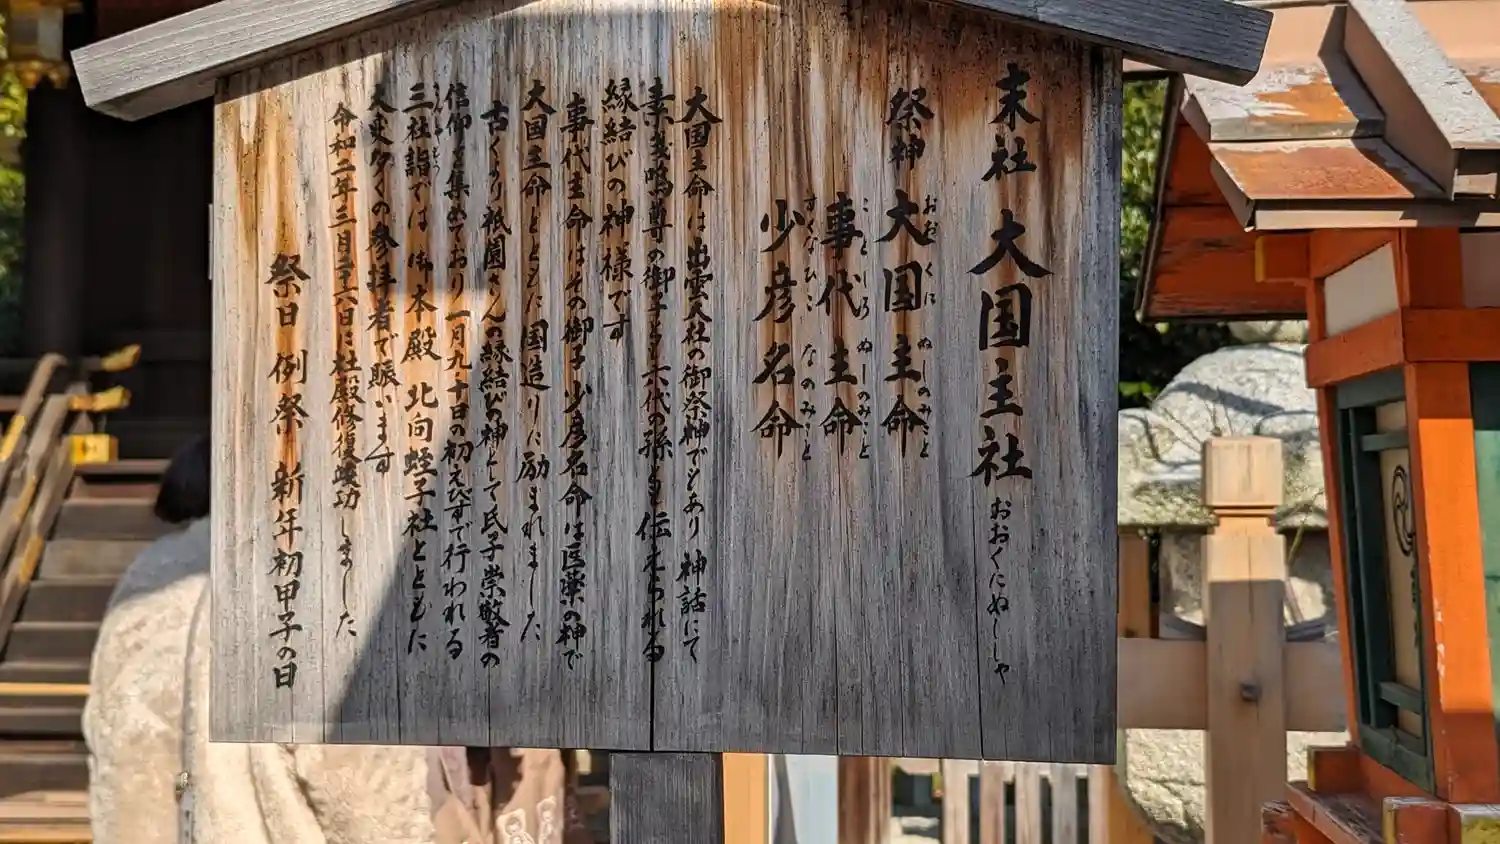 末社 大国主社 おおくにぬししゃ
祭神 大国主命 おおくにぬしのみこと
事代主命 ことしろぬしのみこと
少彦名命 すくなひこなのみこと
大国主命は出雲大社の御祭神でもあり 神話にて
素戔嗚尊の御子とも六代の孫とも伝えられる
縁結びの神様です
事代主命はその御子 少彦名命は医薬の神で
大国主命とともに国造りに励まれました
古くより祇園さんの縁結びの神として氏子崇敬者の
信仰を集めており 一月九・十日の初えびすで行われる
三社詣では御本殿 北向蛭子社とともに
大変多くの参拝者で賑います
令和二年三月二十六日に社殿修復竣功しました
祭日 例祭 新年初甲子の日